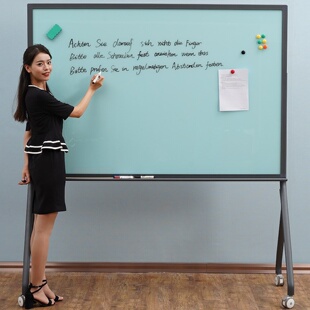 Achten Sie darauf sich nicht die Finger
Bitte alle Schrauben fest anziehen wenn dass
Bitte prüfen Sie in regelmäßigen Abständen